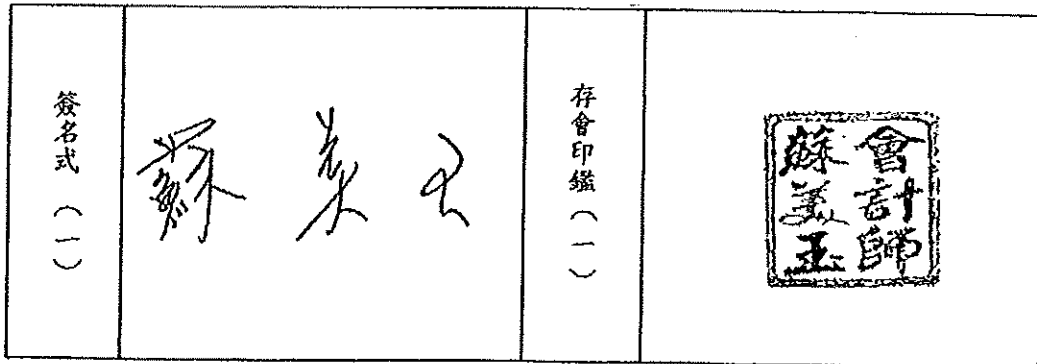 簽名式（一）
蘇美玉
存會印鑑（一）
會計師
蘇美玉